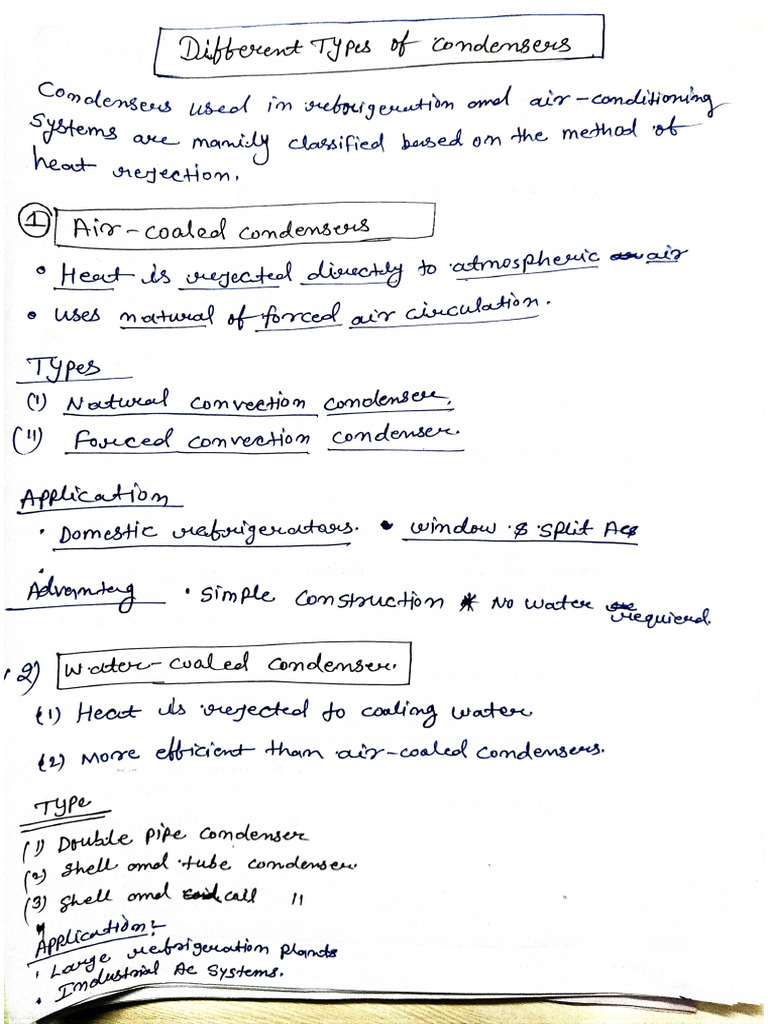 Different Types of condensers
Condensers used in refrigeration and air-conditioning
systems are mainly classified based on the method of
heat rejection.
1 Air-coaled condensers
• Heat is rejected directly to atmospheric air
• uses natural of forced air circulation.
Types
(i) Natural convection condenser.
(ii) Forced convection condenser.
Application
• Domestic refrigerators. • window & split Acs
Advanteg • Simple construction * No water requierd.
2) Water-cualed condenser.
(1) Heat is rejected to coaling water
(2) More efficient than air-coaled condensers.
Type
(1) Double pipe condenser
(2) Shell and tube condenser.
(3) Shell and call "
Application:-
• Large refrigeration plants
• Industrial Ac systems.